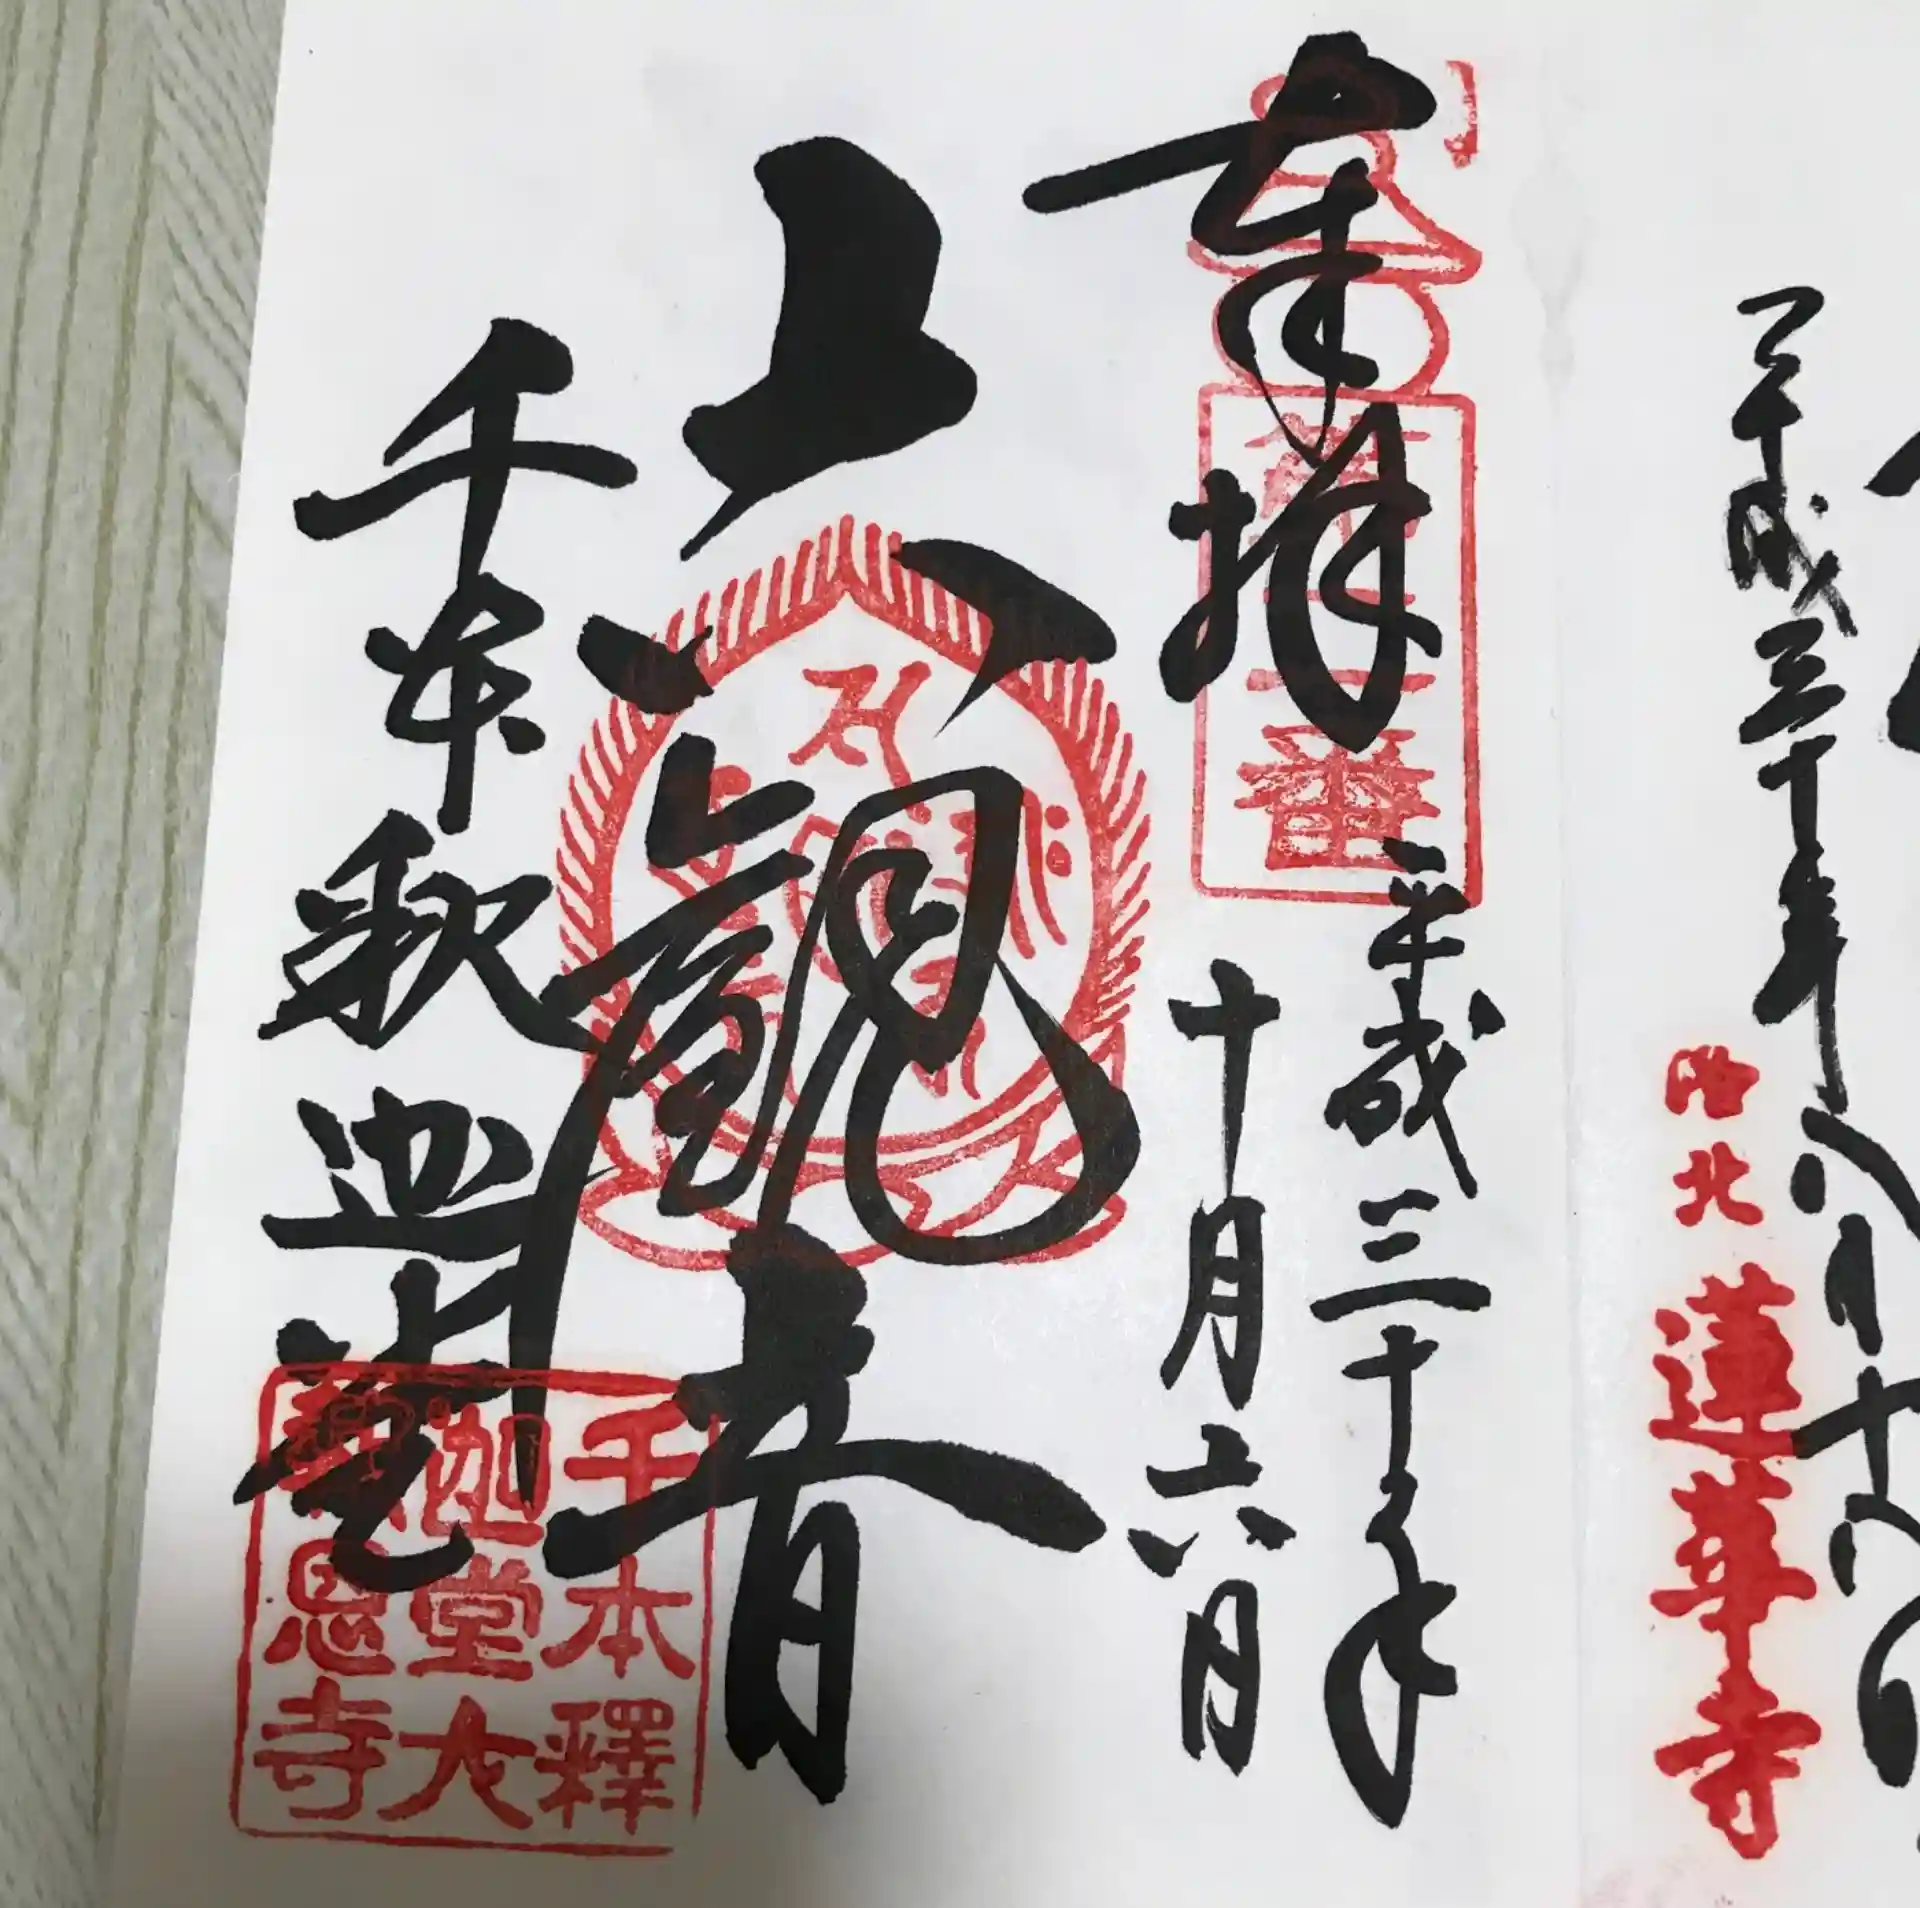 平成三十年八月十八日
洛北
蓮華寺
奉拝
番
平成三十年
十月六日
六観音
千本釈迦堂
千本釋
迦堂大
報恩寺